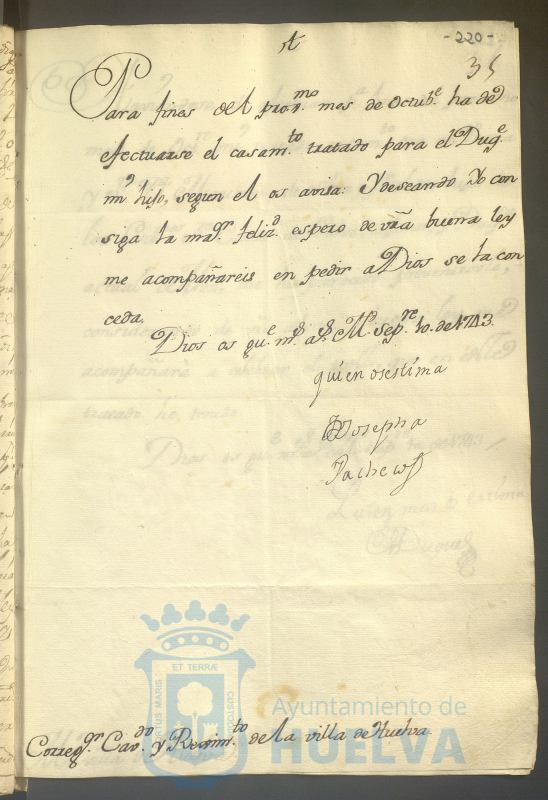 -220-
35
Para fines del proxᵐᵒ mes de Octubᵉ ha de
efectuarse el casamᵗᵒ tratado para el Duqᵉ
mi hijo, segun el os avisa: Y deseando Yo con
siga la maʳ felizᵈ espero de vrã buena ley
me acompañareis en pedir a Dios se la con
ceda.
Dios os guᵉ mˢ aˢ Mᵈ Sepʳᵉ 10. de 1743.
quien os estima
Josepha
Pacheco
Corregᵒʳ Cavᵈᵒ y Rexim.ᵗᵒ de la villa de Huelva.
ET TERRÆ
PORTUS MARIS
CUSTODIA
Ayuntamiento de
HUELVA